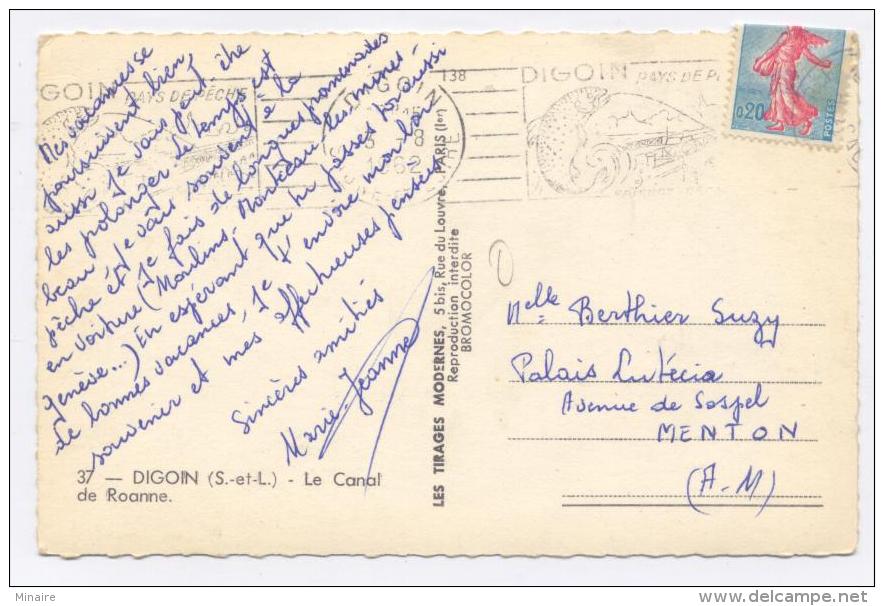 Mes vacances se
poursuivent bien,
aussi je vais
les prolonger. Le temps est
beau. Je vais souvent à la
pêche et je fais de longues promenades
en voiture (Moulins - Montceau les mines -
Genève...) En espérant que tu passes toi aussi
de bonnes vacances, je t'envoie mon bon
souvenir et mes affectueuses pensées
Sincères amitiés
Marie-Jeanne
37 — DIGOIN (S.-et-L.) - Le Canal
de Roanne.
DIGOIN
PAYS DE PÊCHE
DIGOIN
1962
138
LES TIRAGES MODERNES, 5 bis, Rue du Louvre, PARIS (Ier)
Reproduction interdite
BROMOCOLOR
DIGOIN PAYS DE P
0,20
POSTES
Melle Berthier Suzy
Palais Lutécia
Avenue de Sospel
MENTON
(A-M)
Minaire
http://www.delcampe.net